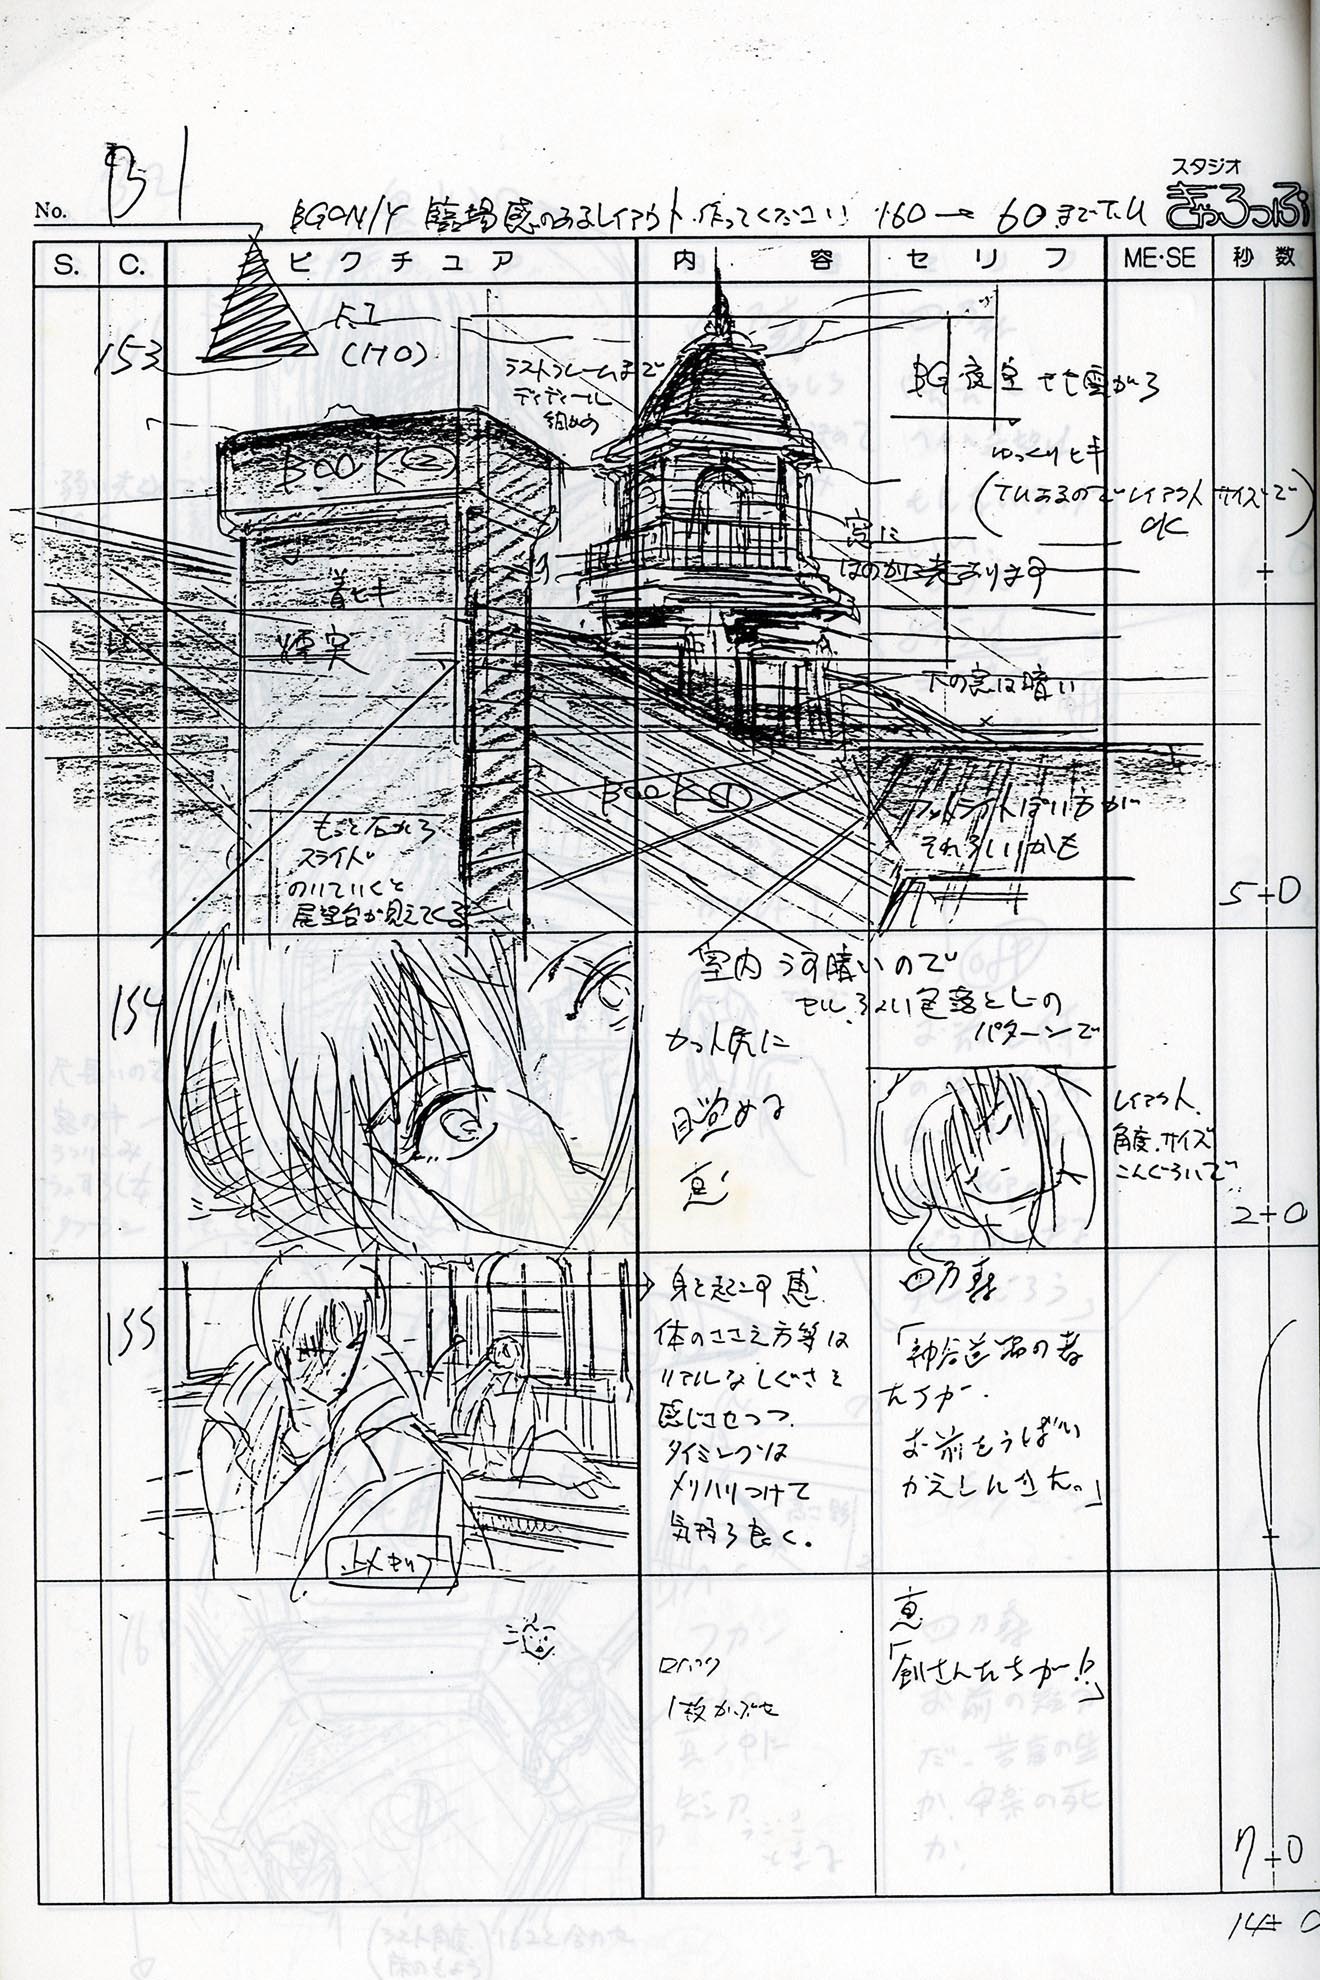 スタジオ
ぎゃろっぷ
No. 151
BG ONLY 臨場感のあるレイアウト作ってください! 160 → 60までT.U
S. C. ピクチュア 内容 セリフ ME・SE 秒数
153
(170)
ラストフレームまで
ディティール
細かめ
BG 夜空
ゆっくりヒキ
レイアウトサイズで
OK
BOOK②
窓に
ほのかに光あります
煙突
下の窓は暗い
BOOK①
フットライトぽい方が
それらしいかも
もっと右から
スライド
のいていくと
展望台が見えてくる
5+0
154
室内うす暗いので
セル、
色落としの
パターンで
カット尻に
目覚める
恵
レイアウト、
角度、サイズ
こんぐらいで
2+0
155
身を起こす恵
体のささえ方等は
リアルなしぐさを
感じさせつつ
タイミングは
メリハリつけて
気持ち良く。
四乃森
「神谷道場の者
たちが、
お前をうばい
かえしにきた。」
止メセリフ
口パク
1枚かぶせ
恵
「剣さんたちが!?」
7+0
14+0